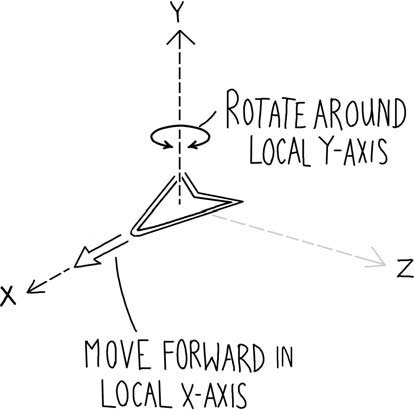 Y
ROTATE AROUND
LOCAL Y-AXIS
Z
X
MOVE FORWARD IN
LOCAL X-AXIS